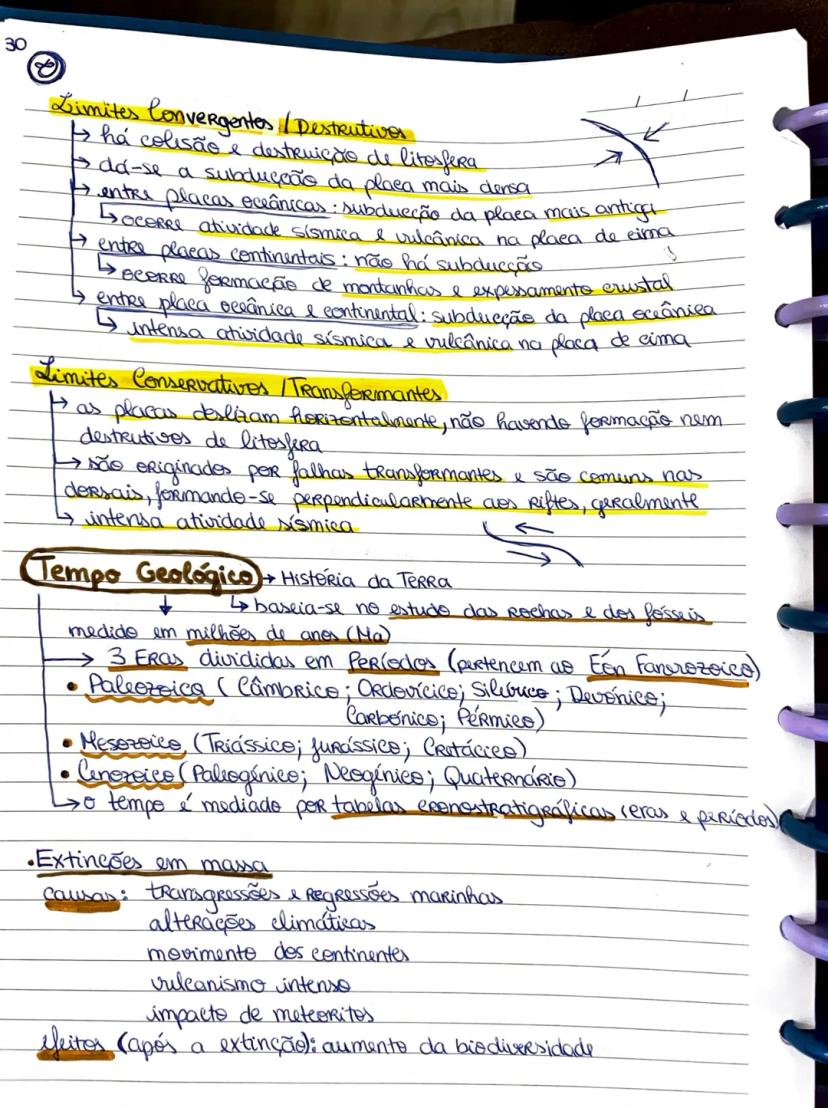 30
Limites Convergentes / Destrutivos
↳ há colisão e destruição de litosfera
↳ dá-se a subducção da placa mais densa
↳ entre placas oceânicas: subducção da placa mais antiga
↳ ocorre atividade sísmica e vulcânica na placa de cima
↳ entre placas continentais: não há subducção
↳ ocorre formação de montanhas e expessamento crustal
↳ entre placa oceânica e continental: subducção da placa oceânica
↳ intensa atividade sísmica e vulcânica na placa de cima
Limites Conservativos / Transformantes
↳ as placas deslizam horizontalmente, não havendo formação nem
destrutivos de litosfera
↳ são originados por falhas transformantes e são comuns nas
dorsais, formando-se perpendicularmente aos riftes, geralmente
↳ intensa atividade sísmica
Tempo Geológico → História da Terra
↓ ↳ baseia-se no estudo das rochas e dos fósseis
medido em milhões de anos (Ma)
→ 3 Eras divididas em Períodos (pertencem ao Éon Fanerozoico)
• Paleozoica (Câmbrico; Ordovícico; Silúrico; Devónico;
Carbónico; Pérmico)
• Mesozoico (Triássico; Jurássico; Cretácico)
• Cenozoico (Paleogénico; Neogénico; Quaternário)
↳ o tempo é mediado por tabelas cronostratigráficas (eras e períodos)
• Extinções em massa
causas: transgressões e regressões marinhas
alterações climáticas
movimento dos continentes
vulcanismo intenso
impacto de meteoritos
efeitos (após a extinção): aumento da biodiversidade